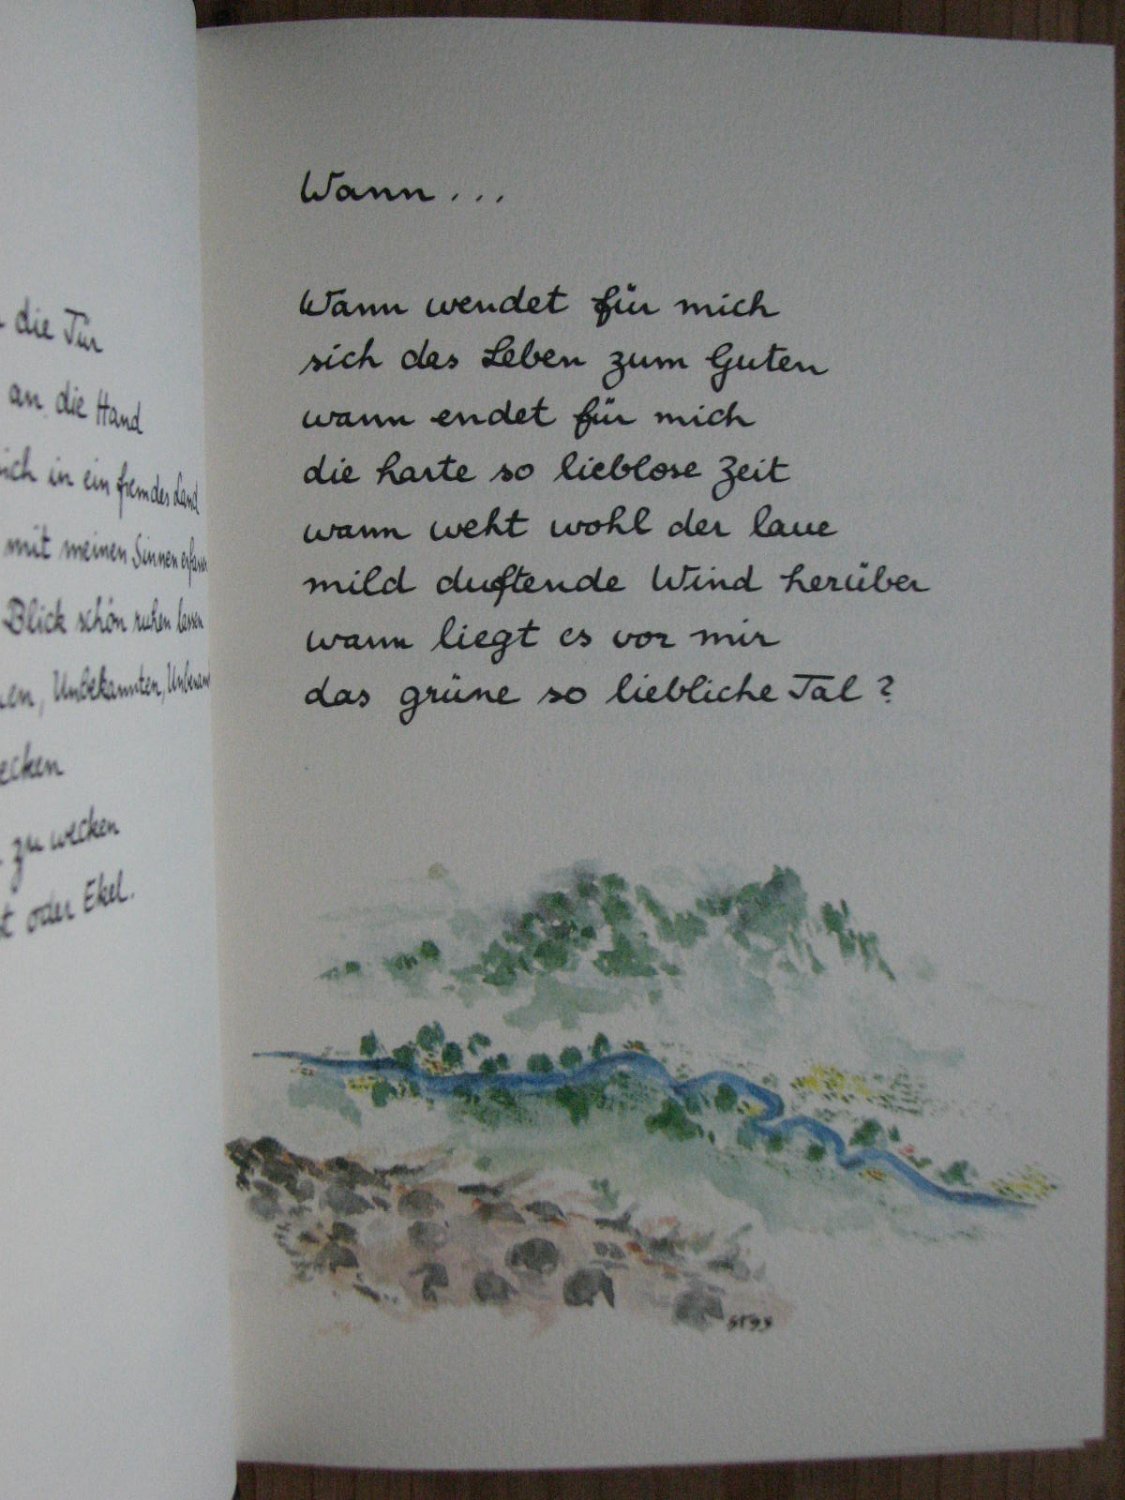 die Tür
an die Hand
mich in ein fremdes Land
mit meinen Sinnen erfassen
Blick schön ruhen lassen
Unbekannten,
zu wecken
oder Ekel.
Wann...
Wann wendet für mich
sich das Leben zum Guten
wann endet für mich
die harte so lieblose Zeit
wann weht wohl der laue
mild duftende Wind herüber
wann liegt es vor mir
das grüne so liebliche Tal?